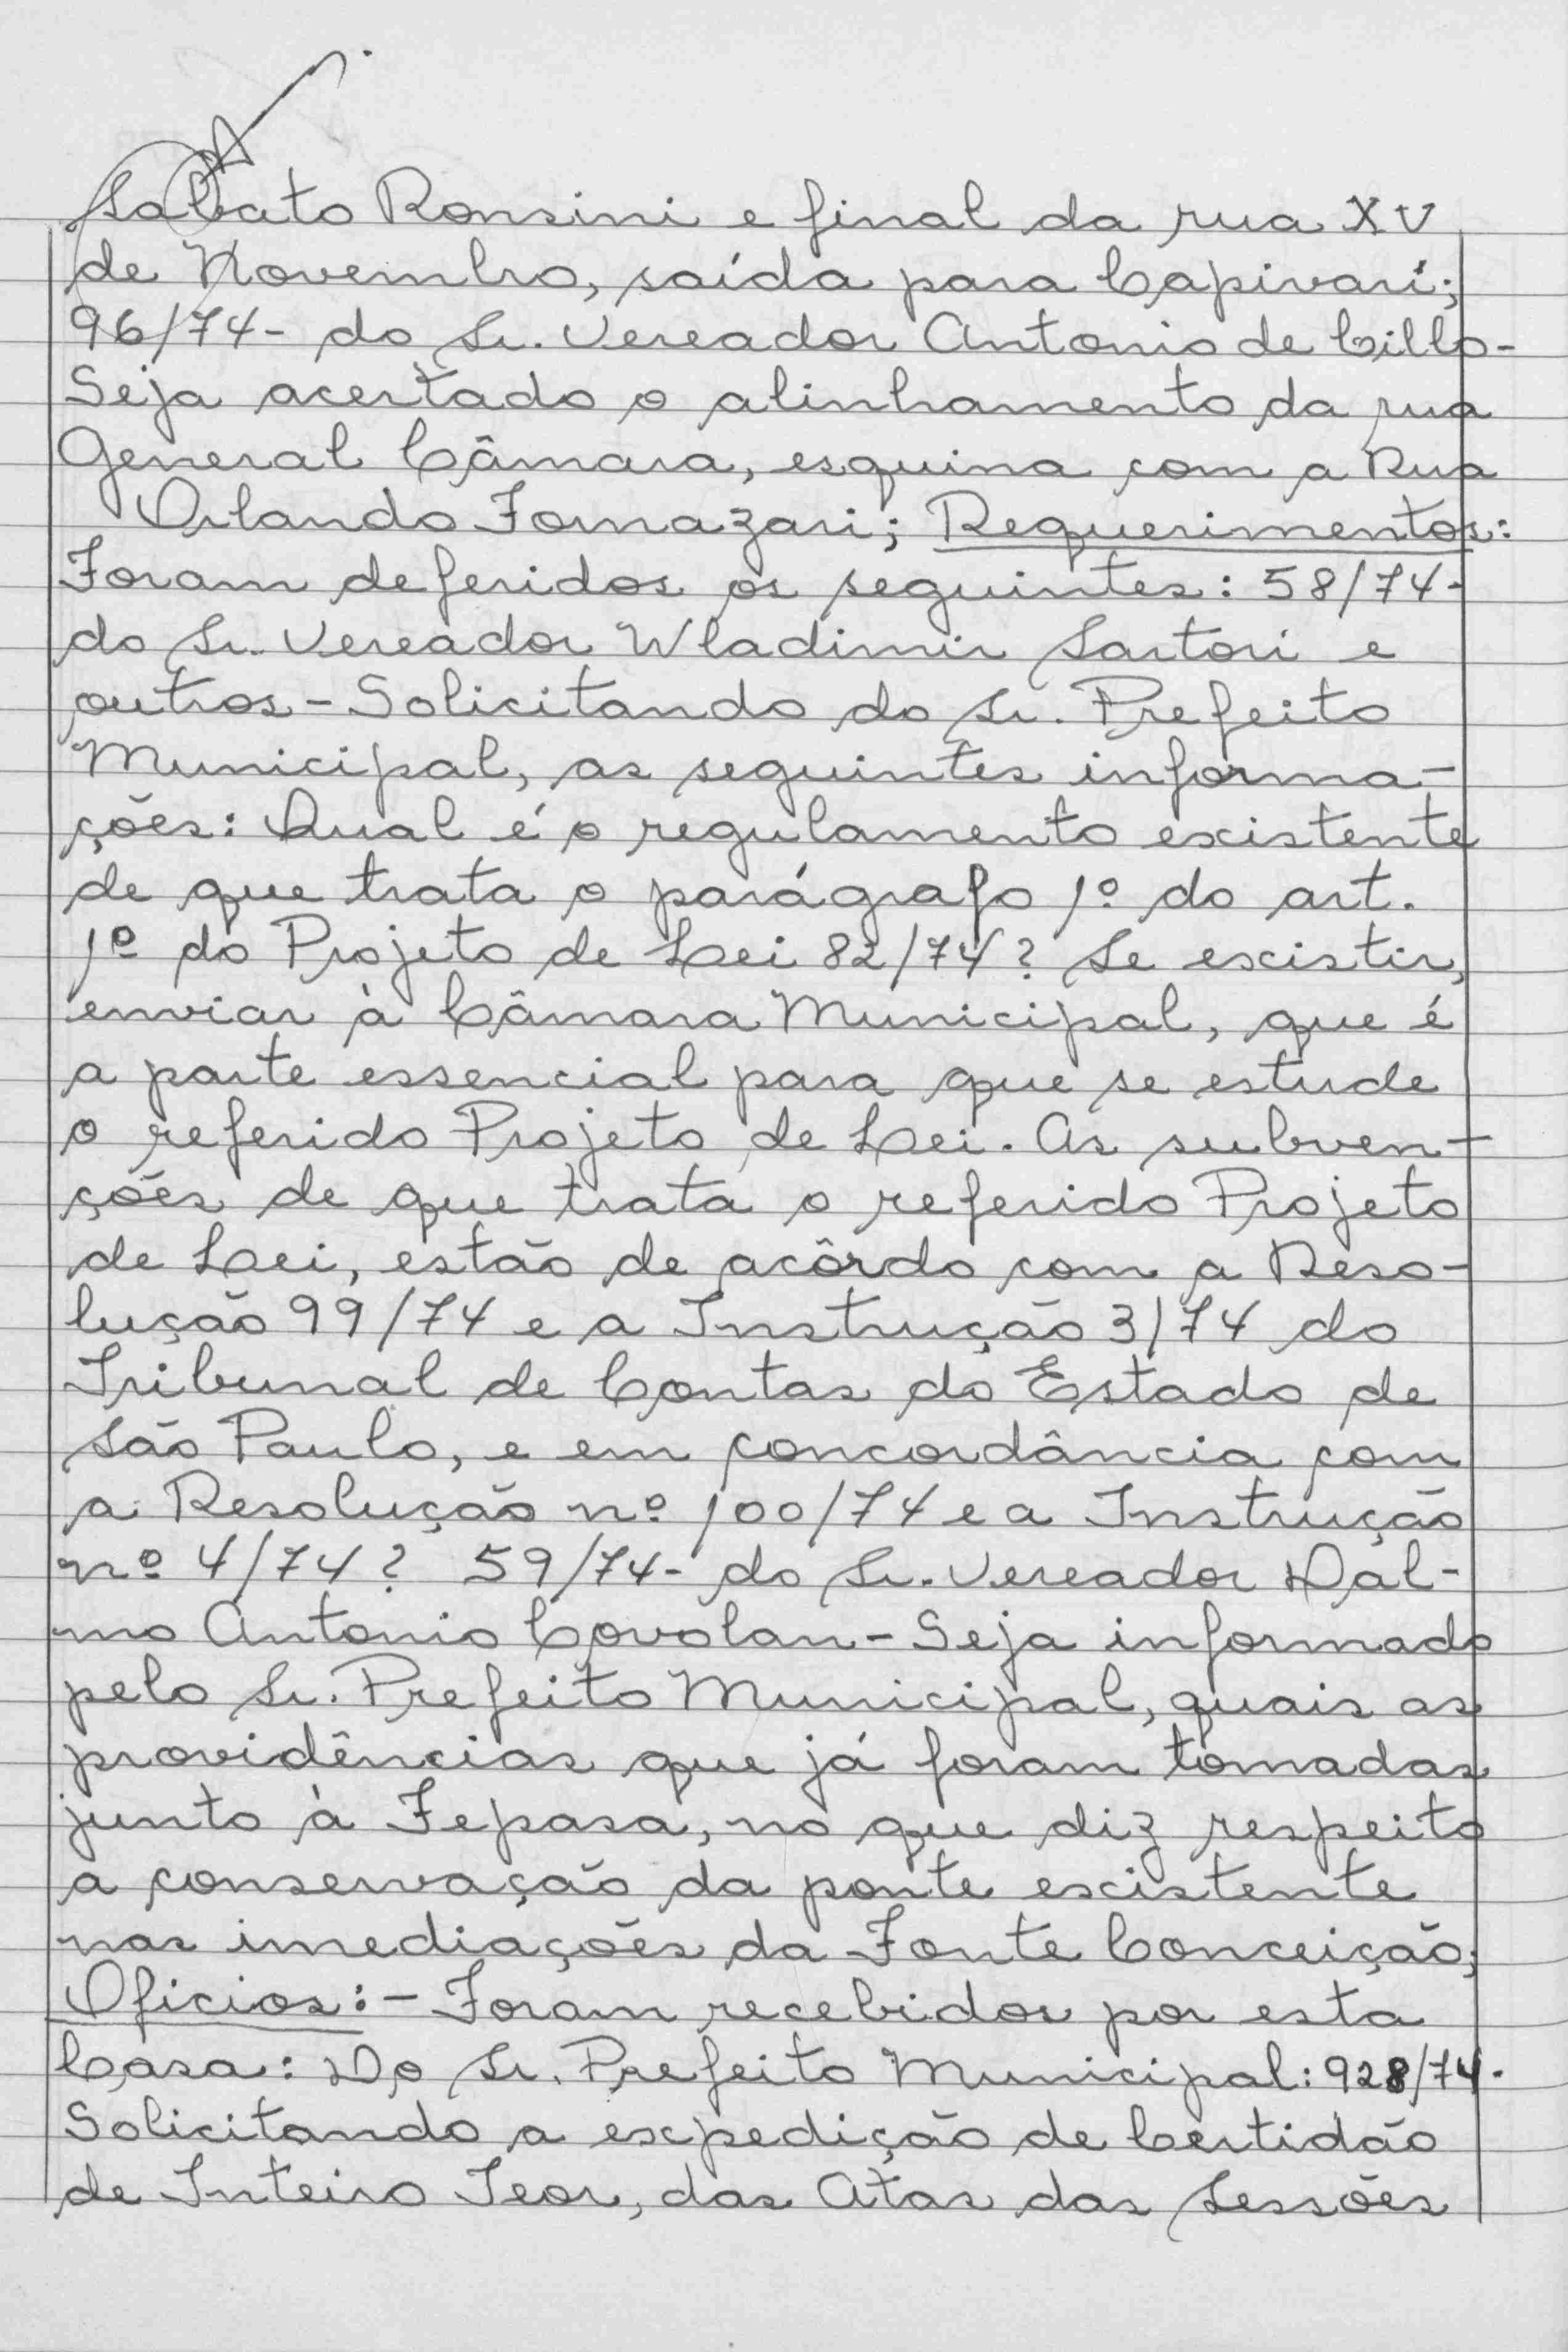 Sabato Ronsini e final da rua XV
de Novembro, saída para Capivari;
96/74- do Sr. Vereador Antonio de Cillo-
Seja acertado o alinhamento da rua
General Câmara, esquina com a Rua
Orlando Fornazari; Requerimentos:
Foram deferidos os seguintes: 58/74-
do Sr. Vereador Wladimir Sartori e
outros - Solicitando do Sr. Prefeito
Municipal, as seguintes informa-
ções: Qual é o regulamento existente
de que trata o parágrafo 1º do art.
1º do Projeto de Lei 82/74? Se existir,
enviar à Câmara Municipal, que é
a parte essencial para que se estude
o referido Projeto de Lei. As subven-
ções de que trata o referido Projeto
de Lei, estão de acôrdo com a Reso-
lução 99/74 e a Instrução 3/74 do
Tribunal de Contas do Estado de
São Paulo, e em concordância com
a Resolução nº 100/74 e a Instrução
nº 4/74? 59/74- do Sr. Vereador Dal-
mo Antonio Covolan - Seja informado
pelo Sr. Prefeito Municipal, quais as
providências que já foram tomadas
junto à Fepasa, no que diz respeito
a conservação da ponte existente
nas imediações da Fonte Conceição;
Oficios: - Foram recebidos por esta
Casa: Do Sr. Prefeito Municipal: 928/74.
Solicitando a expedição de Certidão
de Inteiro Teor, das Atas das Sessões